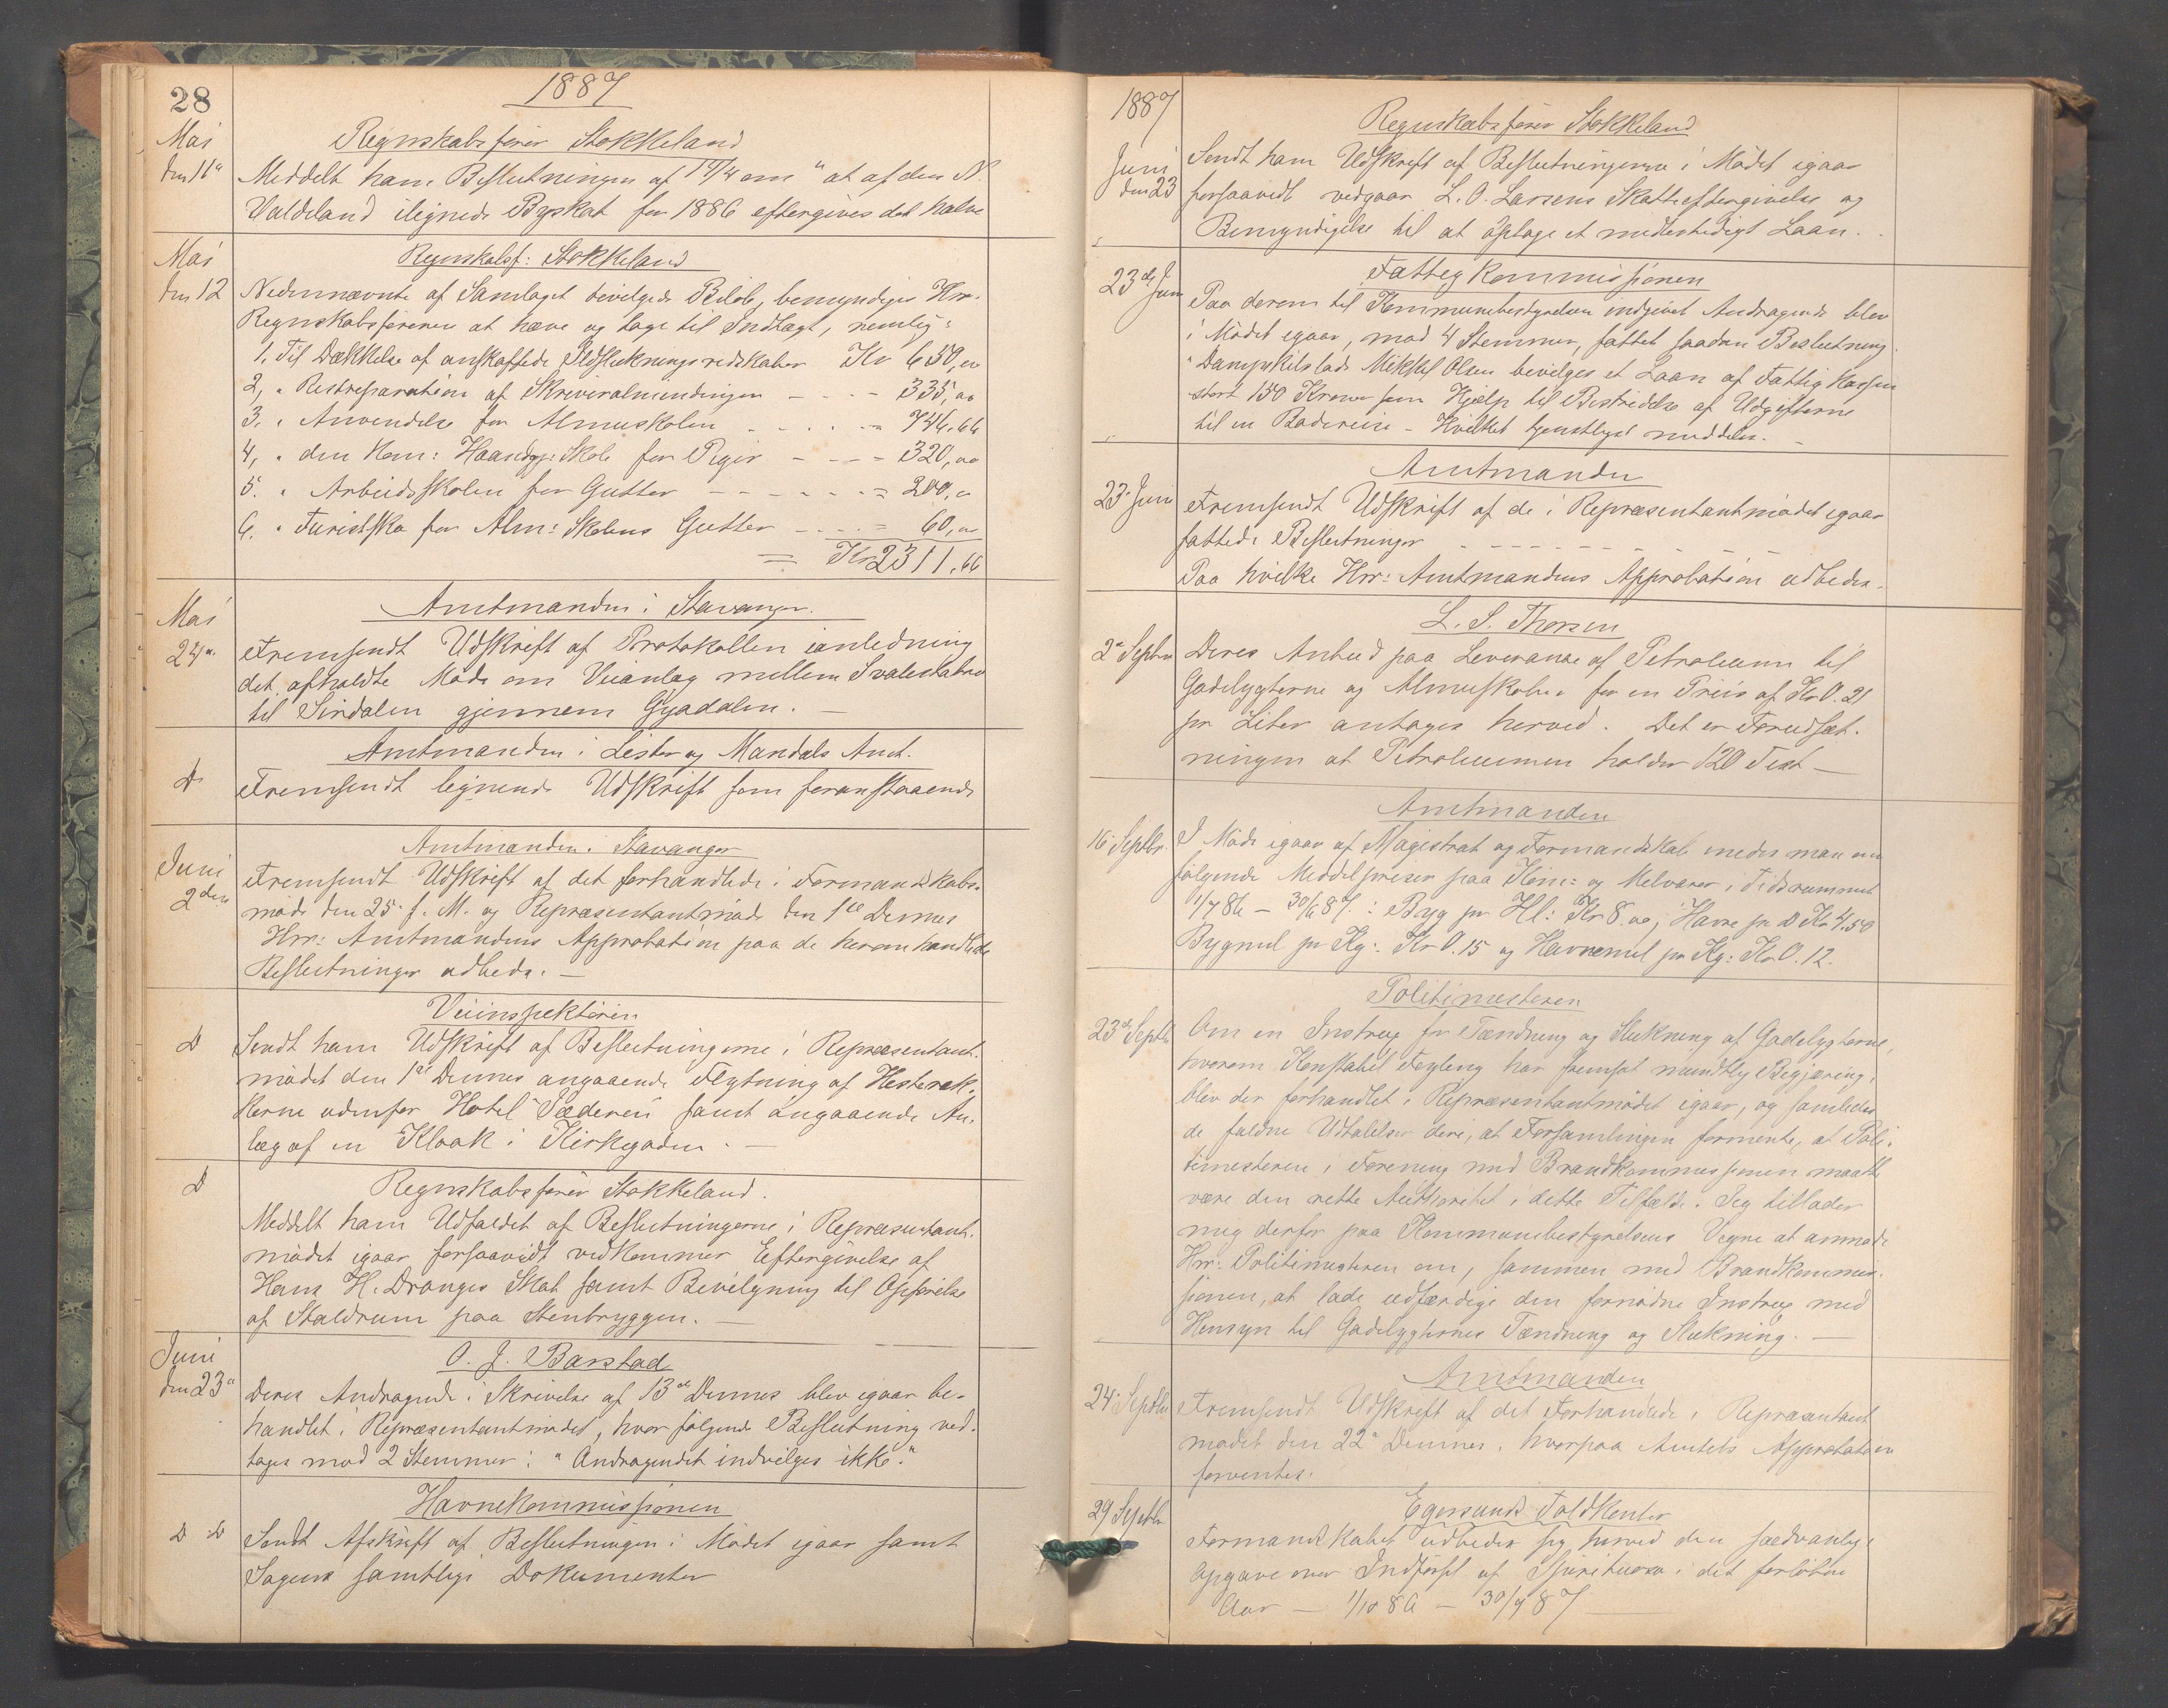 28
1887
Mai
den 11te
Regnskabsfører Stokkeland
Meddelt ham Beslutningen af 14/4 om "at af den N.
Valdeland ilignede Byskat for 1886 eftergives det halve
Mai
den 12
Regnskabsf: Stokkeland
Nedennævnte af Samlaget bevilgede Beløb, bemyndiges Hrr.
Regnskabsføreren at hæve og tage til Indtægt, nemlig:
1. Til Dækkelse af anskaffede Ildslukningsredskaber Kr 650,00
2, " Restreparation af Skriveralmindingen - - - - 335,00
3. " Anvendelse for Almuskolen - - - - 746.66
4, " den kom: Haandgj: Skole for Piger - - - - 320,00
5. " Arbeidsskolen for Gutter - - - - - - 200,00
6. " Turistska for Alm: Skolens Gutter - - - - 60,00
= Kr 2311.66
Mai
24de
Amtmanden i Stavanger.
Fremsendt Udskrift af Protokollen ianledning
det afholdte Møde om Veianlæg mellem Svalestadne
til Sirdalen gjennem Gyadalen. —
Do
Amtmanden i Lister og Mandals Amt.
Fremsendt lignende Udskrift som foranstaaende
Juni
2den
Amtmanden i Stavanger
Fremsendt Udskrift af det forhandlede i Formandskabs-
møde den 25de f. M. og Repræsentantmøde den 1ste Dennes
Hrr: Amtmandens Approbation paa de heromhandlede
Beslutninger udbedes. —
Do
Veiinspektøren
Sendt ham Udskrift af Beslutningerne i Repræsentant-
mødet den 1ste Dennes angaaende Flytning af Hesteræk-
kerne udenfor Hotel "Jæderen" samt angaaende An-
læg af en Kloak i Kirkegaden. —
Do
Regnskabsfører Stokkeland.
Meddelt ham Udfaldet af Beslutningerne i Repræsentant-
mødet igaar forsaavidt vedkommer Eftergivelse af
Hans H. Dranges Skat samt Bevilgning til Opførelse
af Staldrum paa Stenbryggen. —
Juni
den 23de
O. J. Barstad
Deres Andragende i Skrivelse af 13de Dennes blev igaar be-
handlet i Repræsentantmødet, hvor følgende Beslutning ved-
toges mod 2 Stemmer: "Andragendet indvilges ikke."
Do Do
Havnekommissionen
Sendt Afskrift af Beslutningen i Mødet igaar samt
Sagens samtlige Dokumenter
1887
Juni
den 23
Regnskabsfører Stokkeland
Sendt ham Udskrift af Beslutningerne i Mødet igaar
forsaavidt vedgaar L. O. Larsens Skatteeftergivelse og
Bemyndigelse til at optage et midlertidigt Laan.
23de Juni
Fattigkommissionen
Paa derom til Kommunebestyrelsen indgivet Andragende blev
i Mødet igaar, mod 4 Stemmer, fattet saadan Beslutning
"Dampskibslods Mikkel Olsen bevilges et Laan af Fattigkassen
stort 150 Kroner som Hjælp til Bestridelse af Udgifterne
til en Badereise - Hvilket tjenstligst meddeles. —
23de Juni
Amtmanden
Fremsendt Udskrift af de i Repræsentantmødet igaar
fattede Beslutninger - - - - - - - -
Paa hvilke Hrr: Amtmandens Approbation udbedes.
2de Septbr
L. S. Thorsen
Deres Anbud paa Leverance af Petroleum til
Gadelygterne og Almuskolen for en Priis af Kr 0.21
pr Liter antages herved. Det er Forudsæt-
ningen at Petroleummen holder 120 Test —
16 Septbr.
Amtmanden
I Møde igaar af Magistrat og Formandskab enedes man om
følgende Middelpriser paa Korn- og Melvarer i Tidsrummet
1/7 86 — 30/6 87: Byg pr Hl: Kr 8.00; Havre pr Do Kr 4.50
Bygmel pr Kg: Kr 0.15 og Havremel pr Kg: Kr 0.12.
23de Septbr
Politimesteren
Om en Instrux for Tændning og Slukning af Gadelygterne,
hvorom Konstabel Fogleng har fremsat mundtlig Begjæring,
blev der forhandlet i Repræsentantmødet igaar, og samledes
de faldne Udtalelser deri, at Forsamlingen formente, at Poli-
timesteren i Forening med Brandkommissionen maatte
være den rette Autoritet i dette Tilfælde. Jeg tillader
mig derfor paa Kommunebestyrelsens Vegne at anmode
Hrr: Politimesteren om, sammen med Brandkommis-
sionen, at lade udfærdige den fornødne Instrux med
Hensyn til Gadelygternes Tændning og Slukning. —
24 Septbr
Amtmanden
Fremsendt Udskrift af det Forhandlede i Repræsentant
mødet den 22de Dennes, hvorpaa Amtets Approbation
forventes.
29 Septbr
Egersunds Toldkontor
Formandskabet udbeder sig herved den sædvanlige
Opgave over Indførsel af Spirituosa i det forløbne
Aar — 1/10 86 — 30/9 87 —